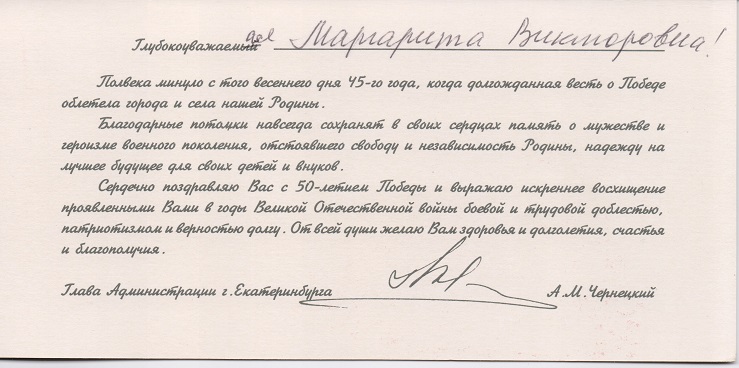 Глубокоуважаемая Маргарита Викторовна!
Полвека минуло с того весеннего дня 45-го года, когда долгожданная весть о Победе
облетела города и села нашей Родины.
Благодарные потомки навсегда сохранят в своих сердцах память о мужестве и
героизме военного поколения, отстоявшего свободу и независимость Родины, надежду на
лучшее будущее для своих детей и внуков.
Сердечно поздравляю Вас с 50-летием Победы и выражаю искреннее восхищение
проявленными Вами в годы Великой Отечественной войны боевой и трудовой доблестью,
патриотизмом и верностью долгу. От всей души желаю Вам здоровья и долголетия, счастья
и благополучия.
Глава Администрации г.Екатеринбурга А.М.Чернецкий